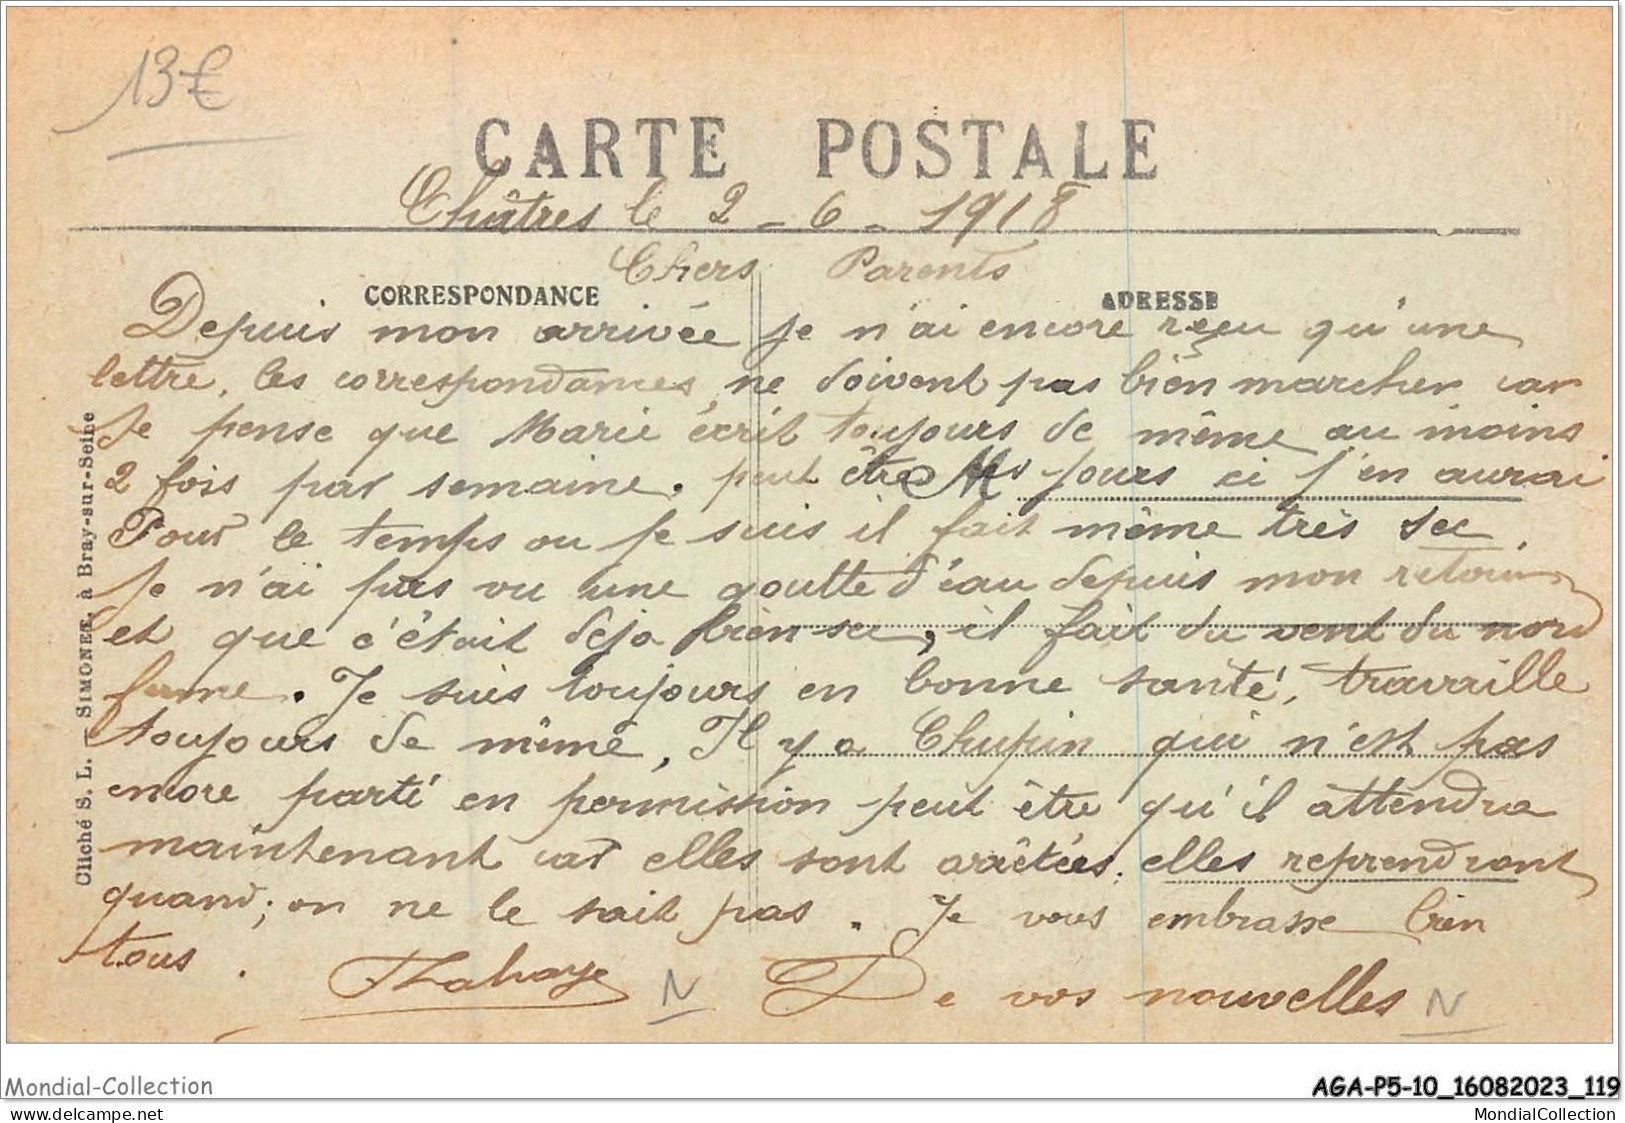 13€
CARTE POSTALE
Châtres le 2 - 6 - 1918
Chers Parents
CORRESPONDANCE
ADRESSE
Depuis mon arrivée je n'ai encore reçu qu'une
lettre, les correspondances ne doivent pas bien marcher car
Je pense que Marie écrit toujours de même au moins
2 fois par semaine. peut être jours ci j'en aurai
Pour le temps ou je suis il fait même très sec.
Je n'ai pas vu une goutte d'eau depuis mon retour
et que c'était deja bien sec, il fait du vent du nord
ferme. Je suis toujours en bonne santé, travaille
toujours de même, Il y a Chupin qui n'est pas
encore parti en permission peut être qu'il attendra
maintenant car elles sont arrêtées, elles reprendront
quand; on ne le sait pas. Je vous embrasse bien
tous.
FLahaye N De vos nouvelles N
Cliché S. L. - SIMONET, à Bray-sur-Seine
Mondial-Collection
AGA-P5-10_16082023_119
delcampe.net
MondialCollection